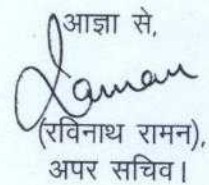 आज्ञा से,
Raman
(रविनाथ रामन),
अपर सचिव।